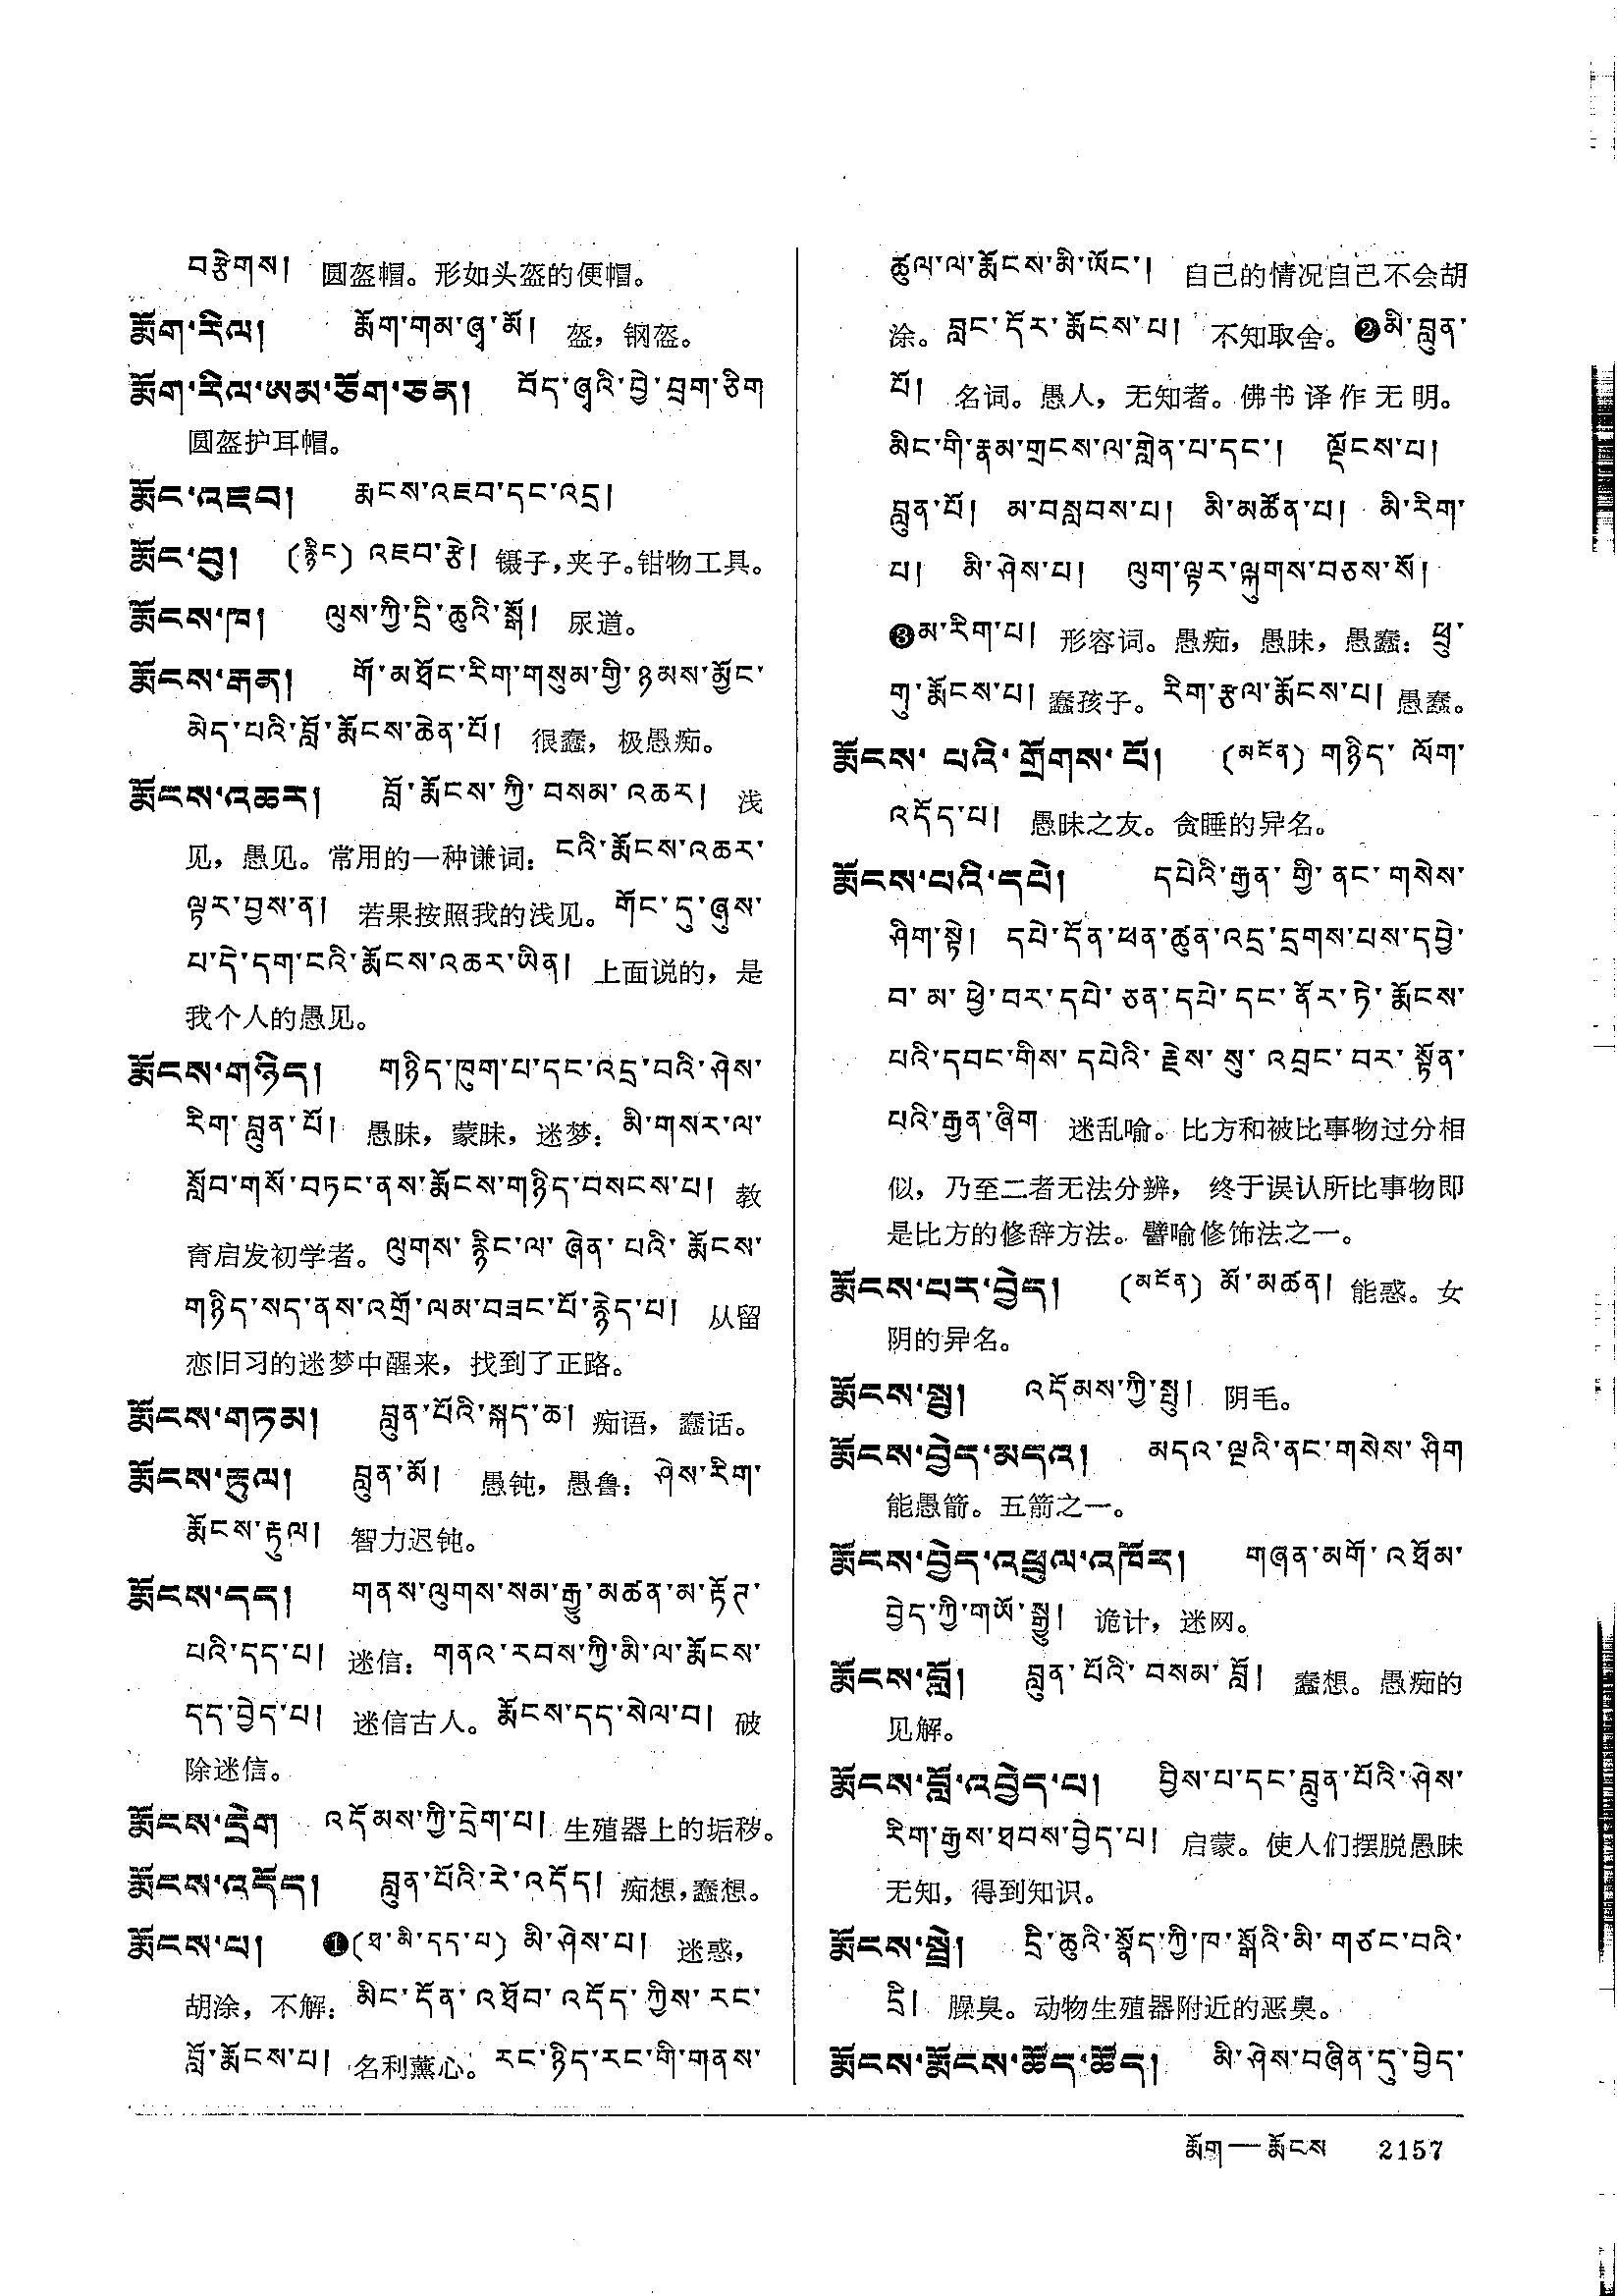 བརྩེགས།  圆盔帽。形如头盔的便帽。
རྨོག་རིལ།  རྨོག་གམ་ཞྭ་མོ།  盔，钢盔。
རྨོག་རིལ་ཨམ་ཅོག་ཅན།  བོད་ཞྭའི་བྱེ་བྲག་ཅིག
圆盔护耳帽。
རྨོང་འཇབ།  རྨངས་འཇབ་དང་འདྲ།
རྨོང་བུ།  (རྙིང) འཇབ་རྩེ།  镊子，夹子。钳物工具。
རྨོངས་ཁ།  ལུས་ཀྱི་དྲི་ཆུའི་སྒོ།  尿道。
རྨོངས་རྒན།  གོ་མཐོང་རིག་གསུམ་གྱི་ཉམས་མྱོང་
མེད་པའི་བློ་རྨོངས་ཆེན་པོ།  很蠢，极愚痴。
རྨོངས་འཆར།  བློ་རྨོངས་ཀྱི་བསམ་འཆར།  浅
见，愚见。常用的一种谦词：ངའི་རྨོངས་འཆར་
ལྟར་བྱས་ན།  若果按照我的浅见。གོང་དུ་ཞུས་
པ་དེ་དག་ངའི་རྨོངས་འཆར་ཡིན།  上面说的，是
我个人的愚见。
རྨོངས་གཉིད།  གཉིད་ཁུག་པ་དང་འདྲ་བའི་ཤེས་
རིག་བླུན་པོ།  愚昧，蒙昧，迷梦：མི་གསར་ལ་
སློབ་གསོ་བཏང་ནས་རྨོངས་གཉིད་བསངས་པ།  教
育启发初学者。ལུགས་རྙིང་ལ་ཞེན་པའི་རྨོངས་
གཉིད་སད་ནས་འགྲོ་ལམ་བཟང་པོ་རྙེད་པ།  从留
恋旧习的迷梦中醒来，找到了正路。
རྨོངས་གཏམ།  བླུན་པོའི་སྐད་ཆ།  痴语，蠢话。
རྨོངས་རྟུལ།  བླུན་མོ།  愚钝，愚鲁：ཤེས་རིག་
རྨོངས་རྟུལ།  智力迟钝。
རྨོངས་དད།  གནས་ལུགས་སམ་རྒྱུ་མཚན་མ་རྟོཊ་
པའི་དད་པ།  迷信：གནའ་རབས་ཀྱི་མི་ལ་རྨོངས་
དད་བྱེད་པ།  迷信古人。རྨོངས་དད་སེལ་བ།  破
除迷信。
རྨོངས་དྲེག  འདོམས་ཀྱི་དྲེག་པ།  生殖器上的垢秽。
རྨོངས་འདོད།  བླུན་པོའི་རེ་འདོད།  痴想，蠢想。
རྨོངས་པ།  ❶(ཐ་མི་དད་པ) མི་ཤེས་པ།  迷惑，
胡涂，不解：མིང་དོན་འཐོབ་འདོད་ཀྱིས་རང་
བློ་རྨོངས་པ།  名利薰心。རང་ཉིད་རང་གི་གནས་
ཚུལ་ལ་རྨོངས་མི་ཡོང་།  自己的情况自己不会胡
涂。བླང་དོར་རྨོངས་པ།  不知取舍。❷མི་བླུན་
པོ།  名词。愚人，无知者。佛书译作无明。
མིང་གི་རྣམ་གྲངས་ལ་གླེན་པ་དང་།  ལྡོངས་པ།
བླུན་པོ།  མ་བསླབས་པ།  མི་མཚོན་པ།  མི་རིག་
པ།  མི་ཤེས་པ།  ལུག་ལྟར་ལྐུགས་བཅས་སོ།
❸མ་རིག་པ།  形容词。愚痴，愚昧，愚蠢：ཕྲུ་
གུ་རྨོངས་པ།  蠢孩子。རིག་རྩལ་རྨོངས་པ།  愚蠢。
རྨོངས་པའི་གྲོགས་པོ།  (མངོན) གཉིད་ལོག་
འདོད་པ།  愚昧之友。贪睡的异名。
རྨོངས་པའི་དཔེ།  དཔེའི་རྒྱན་གྱི་ནང་གསེས་
ཤིག་སྟེ།  དཔེ་དོན་ཕན་ཚུན་འདྲ་དྲགས་པས་དབྱེ་
བ་མ་ཕྱེ་བར་དཔེ་ཅན་དཔེ་དང་ནོར་ཏེ་རྨོངས་
པའི་དབང་གིས་དཔེའི་རྗེས་སུ་འབྲང་བར་སྟོན་
པའི་རྒྱན་ཞིག  迷乱喻。比方和被比事物过分相
似，乃至二者无法分辨，终于误认所比事物即
是比方的修辞方法。譬喻修饰法之一。
རྨོངས་པར་བྱེད།  (མངོན) མོ་མཚན།  能惑。女
阴的异名。
རྨོངས་སྤུ།  འདོམས་ཀྱི་སྤུ།  阴毛。
རྨོངས་བྱེད་མདའ།  མདའ་ལྔའི་ནང་གསེས་ཤིག
能愚箭。五箭之一。
རྨོངས་བྱེད་འཕྲུལ་འཁོར།  གཞན་མགོ་འཐོམ་
བྱེད་ཀྱི་གཡོ་སྒྱུ།  诡计，迷网。
རྨོངས་བློ།  བླུན་པོའི་བསམ་བློ།  蠢想。愚痴的
见解。
རྨོངས་བློ་འབྱེད་པ།  བྱིས་པ་དང་བླུན་པོའི་ཤེས་
རིག་རྒྱས་ཐབས་བྱེད་པ།  启蒙。使人们摆脱愚昧
无知，得到知识。
རྨོངས་སྦྲེ།  དྲི་ཆུའི་སྣོད་ཀྱི་ཁ་སྒོའི་མི་གཙང་བའི་
དྲི།  臊臭。动物生殖器附近的恶臭。
རྨོངས་རྨོངས་ཚོད་ཚོད།  མི་ཤེས་བཞིན་དུ་བྱེད་
རྨོག — རྨོངས  2157